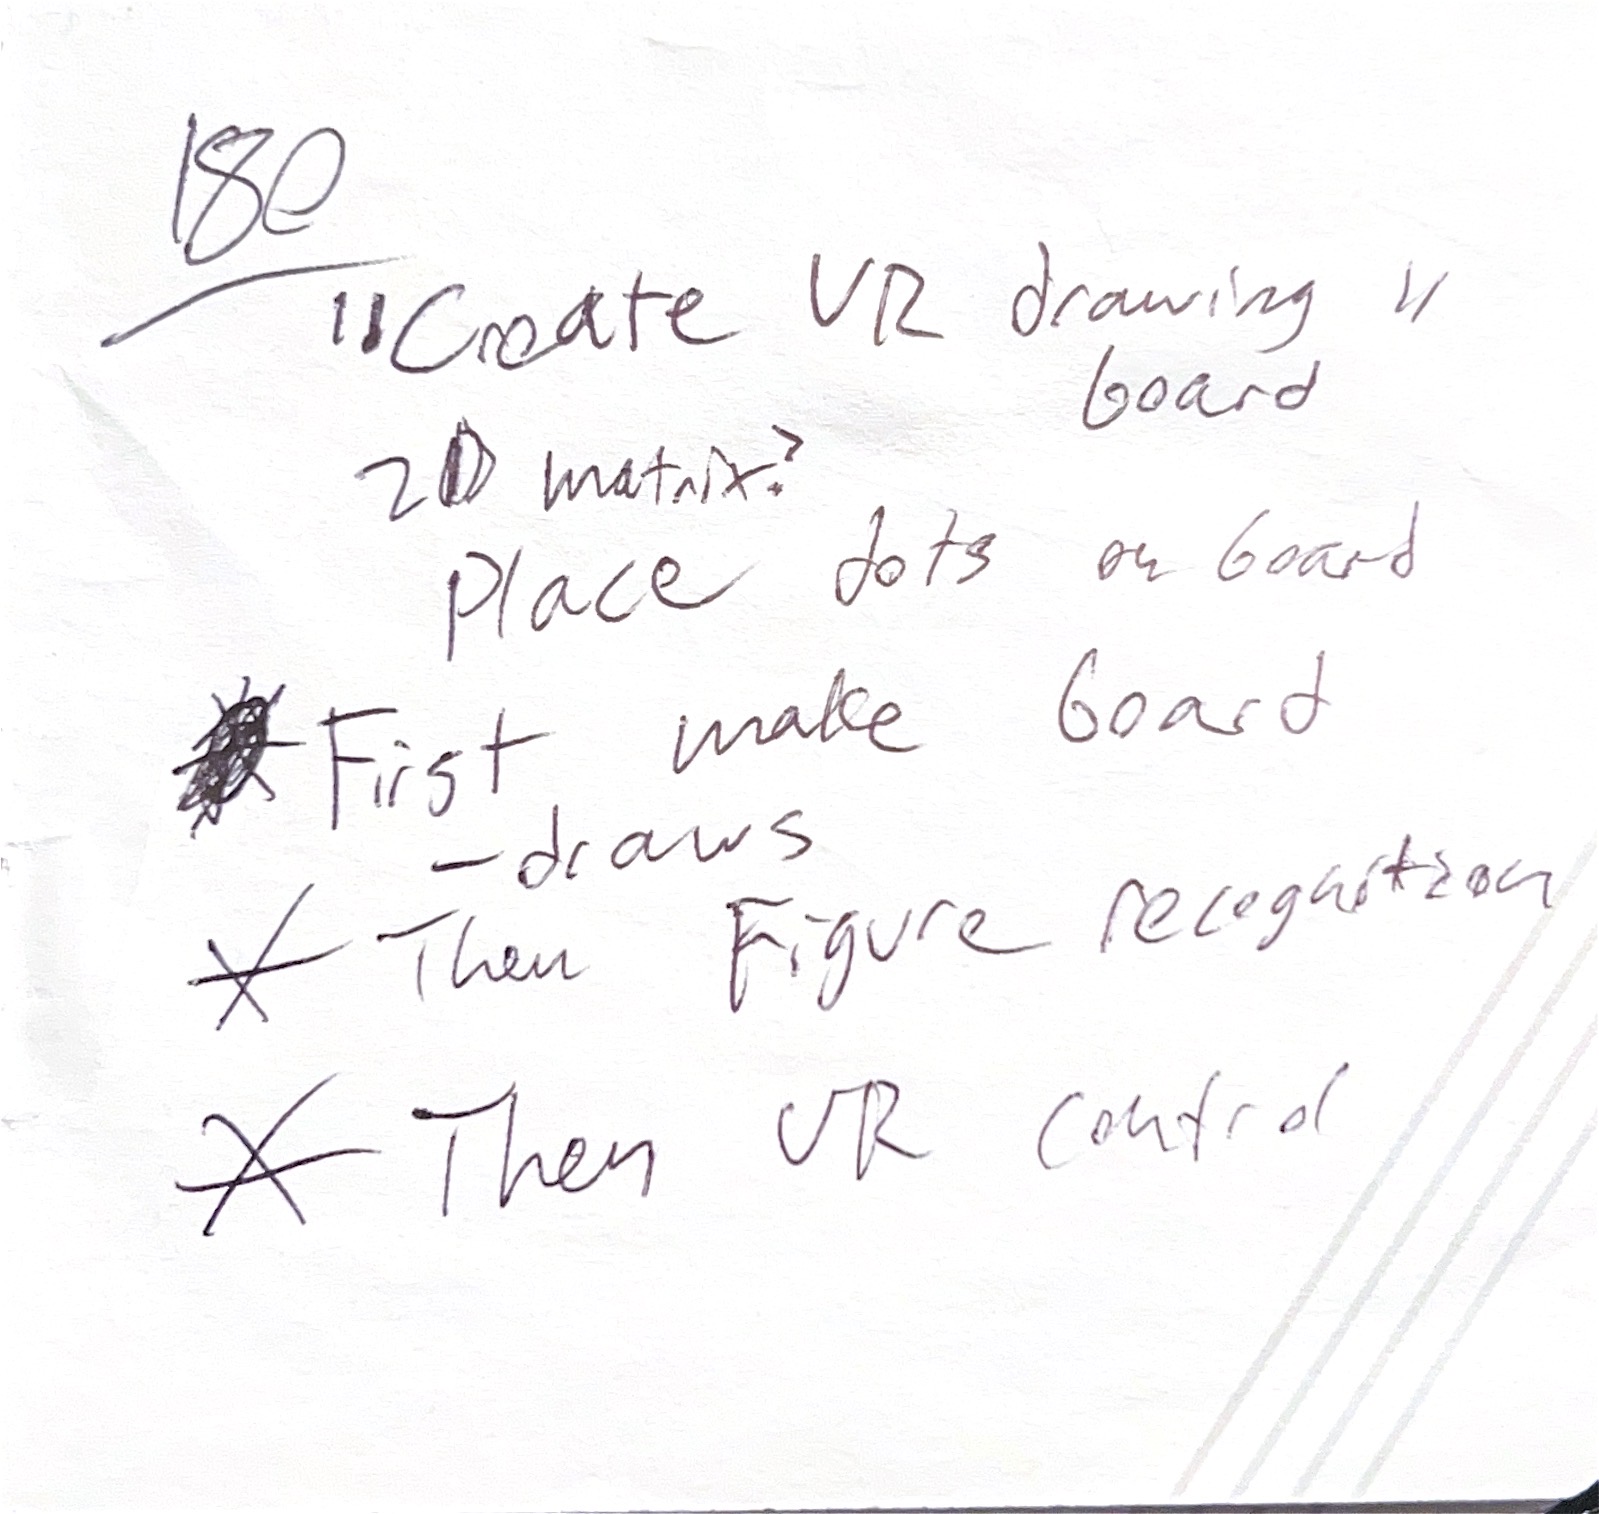 180
"Create VR drawing"
board
2D matrix?
Place dots on board
* First make board
- draws
* Then Figure recognition
* Then VR control